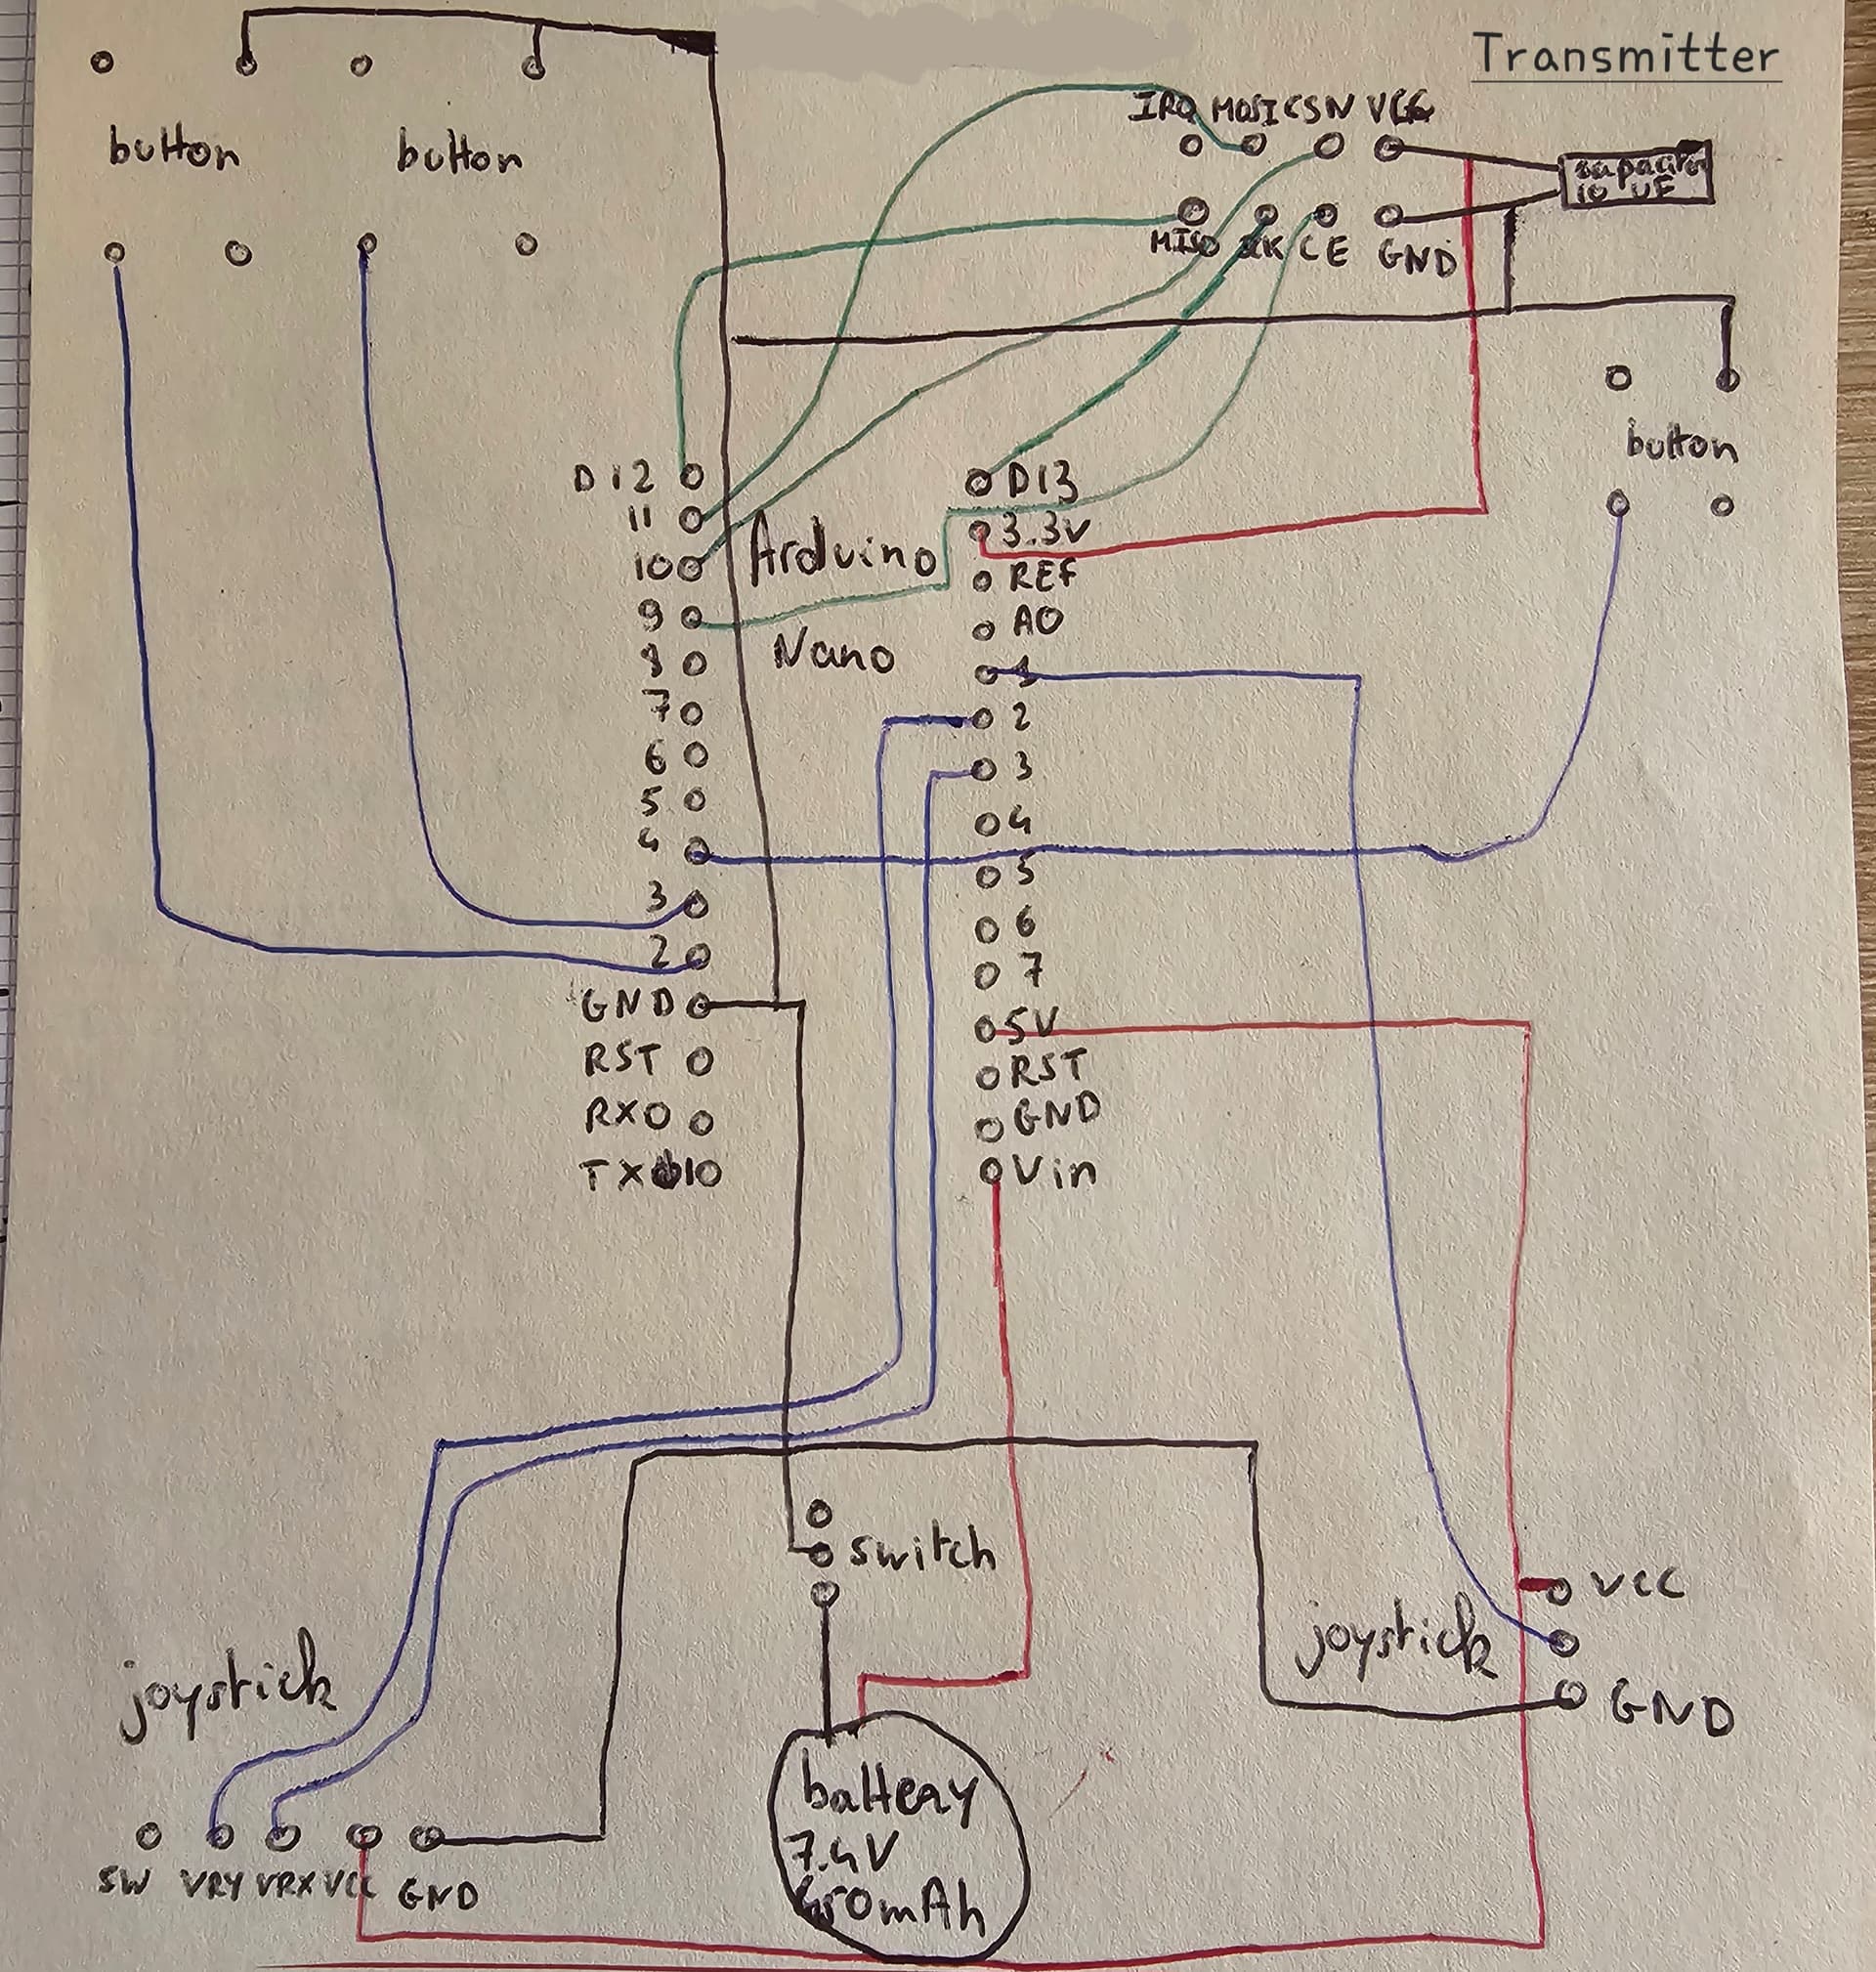 Transmitter
IRQ MOSI CSN VCC
button button
capacitor
10 UF
MISO SCK CE GND
button
D12
D13
11
3.3v
Arduino
10
REF
9
A0
Nano
8
1
7
2
6
3
5
4
4
5
3
6
2
7
GND
5V
RST
RST
RX0
GND
Vin
switch
VCC
joystick
joystick
GND
battery
7.4V
SW VRY VRX VCC GND